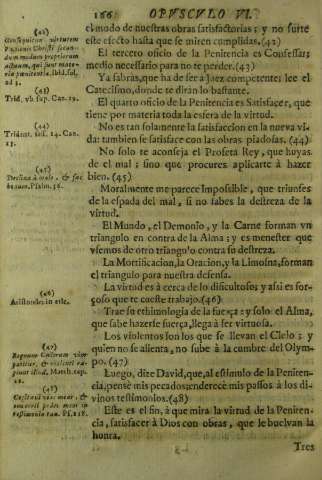 166. OPVSCVLO VI.
el modo de nuestras obras satisfactorias; y no surte
este efecto hasta que se miren cumplidas. (42)
El tercero oficio de la Penitencia es Confessar;
medio necessario para no te perder. (43)
Ya sabras, que ha de ser a Juez competente; lee el
Catecismo, donde te diràn lo bastante.
El quarto oficio de la Penitencia es Satisfacer, que
tiene por materia toda la esfera de la virtud.
No es tan solamente la satisfaccion en la nueva vi-
da: tambien se satisface con las obras piadosas. (44)
No solo te aconseja el Profeta Rey, que huyas
de el mal; sino que procures aplicarte à hazer
bien. (45)
Moralmente me parece impossible, que triunfes
de la espada del mal, si no sabes la destreza de la
virtud.
El Mundo, el Demonio, y la Carne forman vn
triangulo en contra de la Alma; y es menester que
vsemos de otro triangulo contra su destreza.
La Mortificacion, la Oracion, y la Limosna, forman
el triangulo para nuestra defensa.
La virtud es à cerca de lo dificultoso; y assi es for-
çoso que te cueste trabajo. (46)
Trae su ethimologia de la fuerça; y solo el Alma,
que sabe hazerse fuerça, llega à ser virtuosa.
Los violentos son los que se llevan el Cielo; y
quien no se alienta, no sube à la cumbre del Olym-
po. (47)
Luego, dize David, que, al estimulo de la Peniten-
cia, pensè mis pecados; enderecè mis passos à los di-
vinos testimonios. (48)
Este es el fin, à que mira la virtud de la Peniten-
cia, satisfacer à Dios con obras, que le buelvan la
honra.
Tres
(42)
Passionis Christi secun-
dum modum proprium
actuum, qui sunt mate-
ria pœnitentiæ. Ibid. sol.
ad 3.
(43)
Trid. vb. sup. Can. 19.
(44)
Trident. sess. 14. Can.
13.
(45)
Declina à malo, & fac
bonum. Psalm. 36.
(46)
Aristoteles in ethic.
(47)
Regnum Cælorum vim
patitur, & violenti ra-
piunt illud. Matth. cap.
11.
(48)
Cogitavi vias meas, &
converti pedes meos in
testimonia tua. Ps. 118.